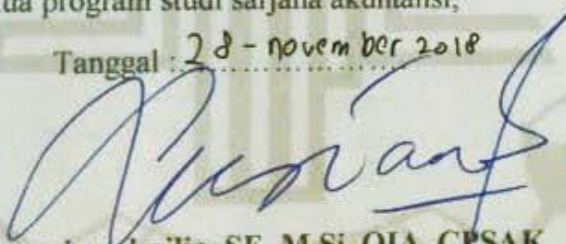 program studi sarjana akuntansi,
Tanggal : 28 - november 2018
SE, M.Si, QIA, CPSAK